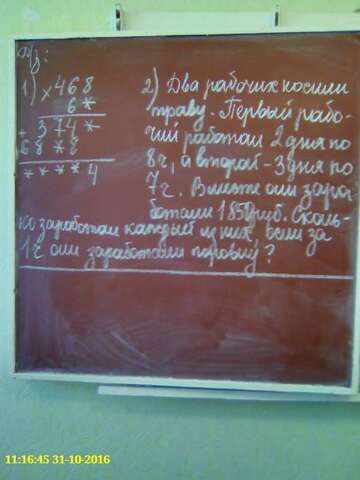 Д/з:
1) ×468
6*
+ 374*
28*8
****4
2) Два рабочих косили
траву. Первый рабо-
чий работал 2 дня по
8ч, а второй - 3 дня по
7ч. Вместе они зара-
ботали 1850 руб. Сколь-
ко заработал каждый из них если за
1ч они заработали поровну?
11:16:45 31-10-2016